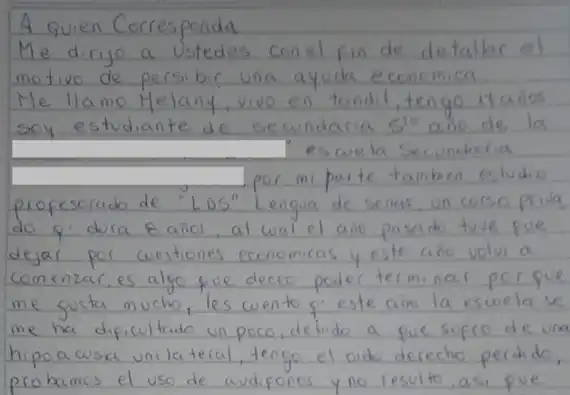 A quien Corresponda
Me dirijo a Ustedes con el fin de detallar el
motivo de persibir una ayuda economica
Me llamo Melany, vivo en tandil, tengo 17 años
soy estudiante de secundaria 5to año de la
escuela Secundaria
por mi parte tambien estudio
profesorado de "LDS" Lengua de señas, un curso priva
do q' dura 2 años, al cual el año pasado tuve que
dejar por cuestiones economicas y este año volvi a
comenzar, es algo que deceo poder terminar por que
me gusta mucho, les cuento q' este año la escuela se
me ha dificultado un poco, debido a que sufro de una
hipoacusia unilateral, tengo el oido derecho perdido,
probamos el uso de audifonos y no resulto, asi que